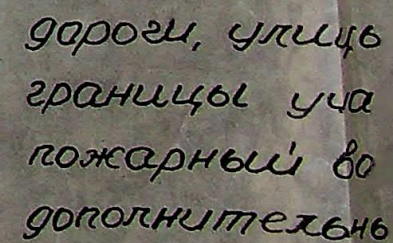 дороги, улицы
границы уча
пожарный во
дополнительны